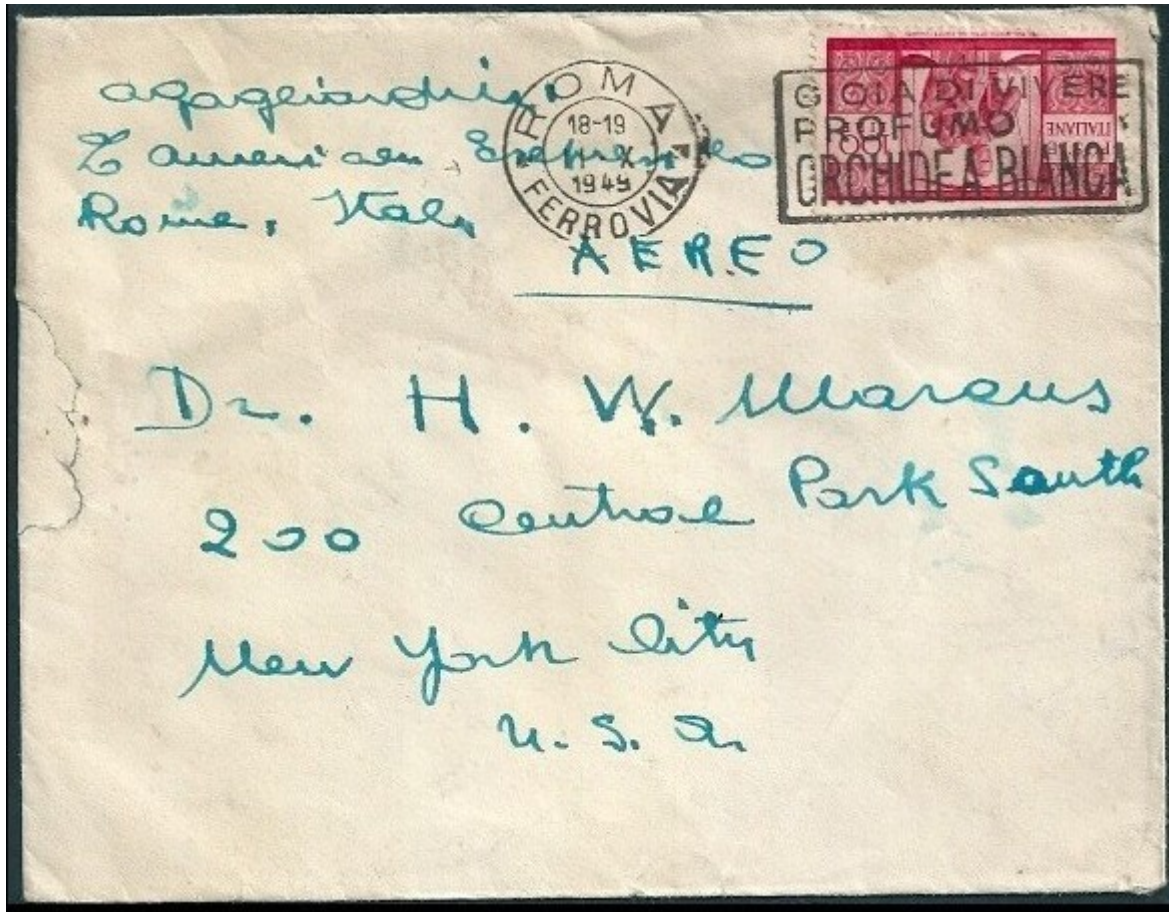 American Express Co
Rome, Italy
ROMA
18-19
X
1949
FERROVIA
GIOIA DI VIVERE
PROFUMO
ORCHIDEA BIANCA
ITALIANE
100
AEREO
Dr. H. W. Marcus
200 Central Park South
New York City
U. S. A.